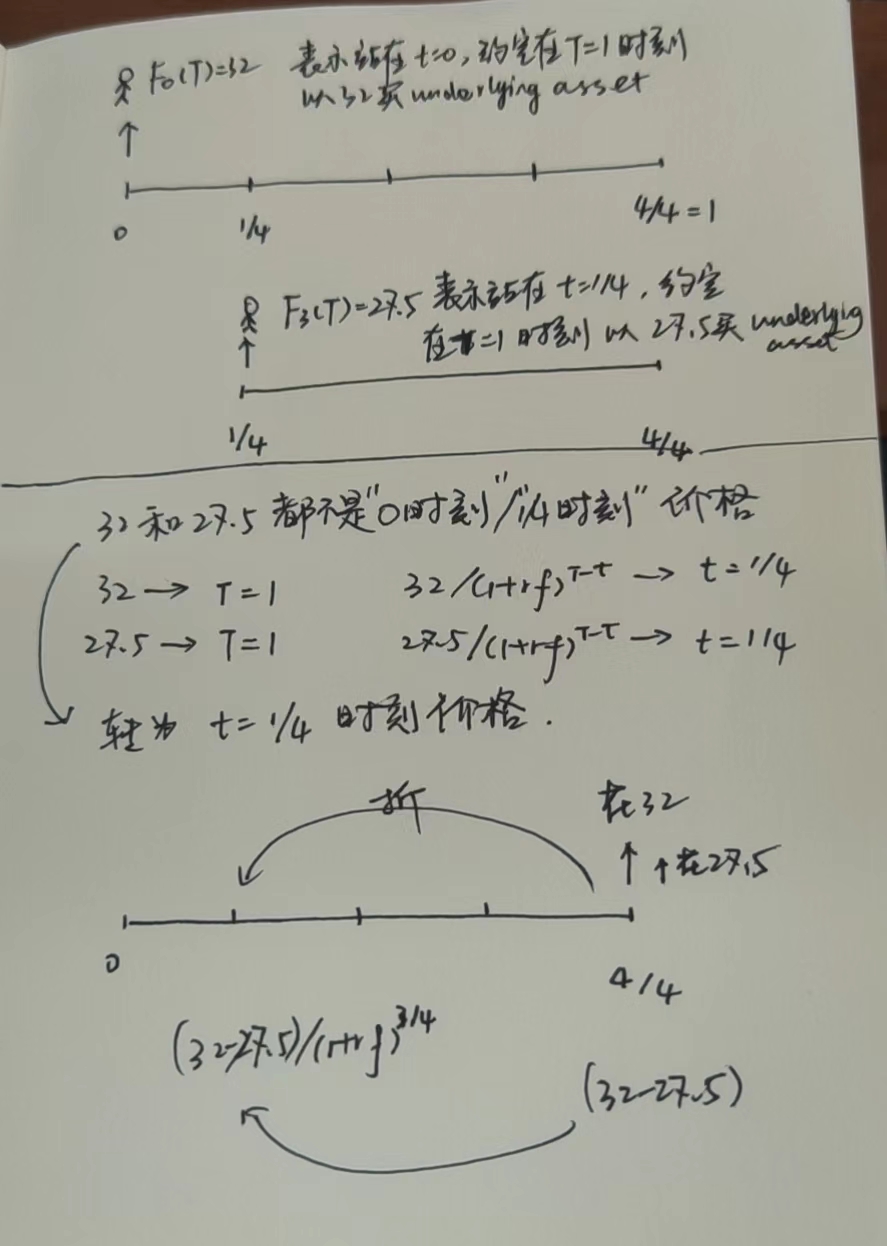 F₀(T)=32 表示站在 t=0,约定在 T=1 时刻
以 32 买 underlying asset
0 1/4 4/4 = 1
F₃(T)=27.5 表示站在 t=1/4,约定
在 =1 时刻以 27.5 买 underlying
asset
1/4 4/4
32 和 27.5 都不是"0时刻"/"1/4时刻" 价格
32 → T=1 32/(1+rf)^{T-t} → t=1/4
27.5 → T=1 27.5/(1+rf)^{T-T} → t=1/4
转为 t=1/4 时刻价格.
折 在32
在27.5
0 4/4
(32-27.5)/(1+rf)^{3/4}
(32-27.5)